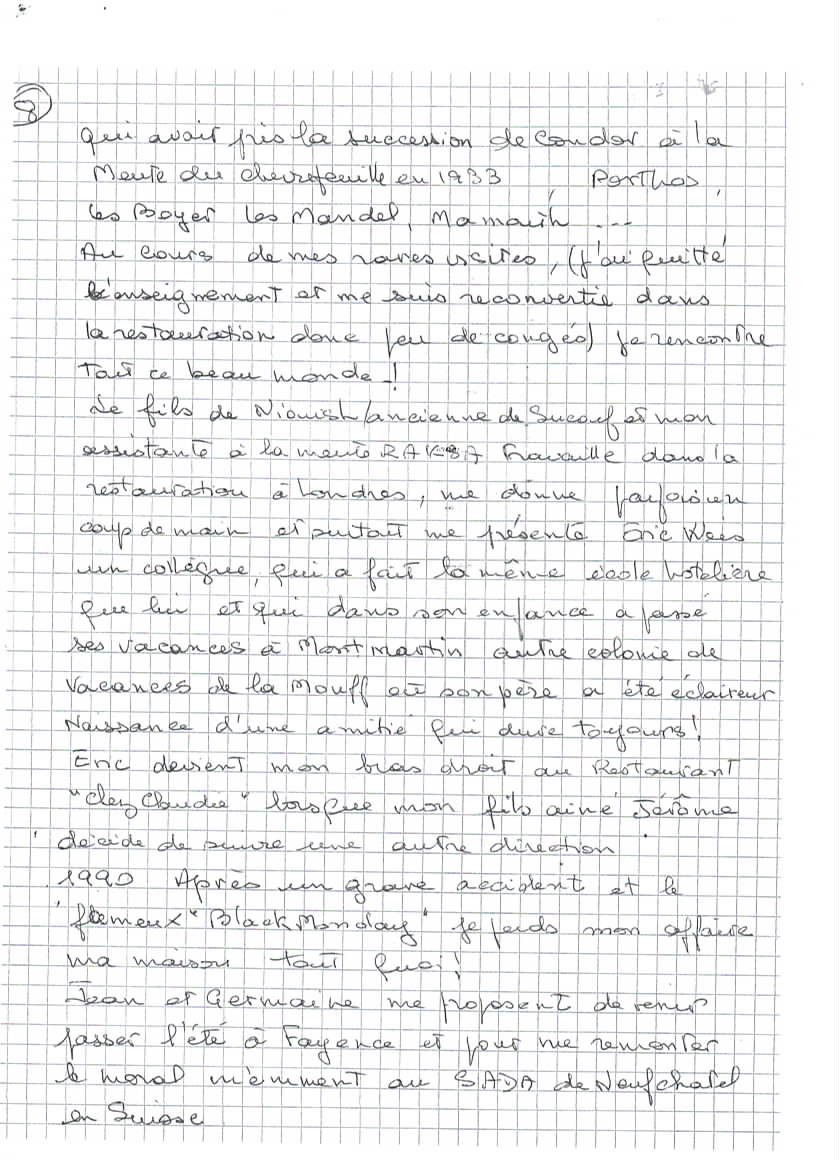 8
qui avait pris la succession de Condor à la
Meute du chevrefeuille en 1933 , Porthos,
les Boyer les Mandel, Mamaih ...
Au cours de mes rares visites, (j'ai quitté
l'enseignement et me suis reconvertie dans
la restauration donc peu de congés) je rencontre
Tout ce beau monde !
Le fils de ancienne de Sucouf et mon
assistante à la meute RAKSA travaille dans la
restauration à Londres, me donne parfois un
coup de main et surtout me présente Eric Wees
un collègue, qui a fait la même école hotelière
que lui et qui dans son enfance a passé
ses vacances à Montmartin autre colonie de
Vacances de la Mouff où son père a été éclaireur
Naissance d'une amitié qui dure toujours !
Eric devient mon bras droit au Restaurant
"chez Claudie" lorsque mon fils ainé Jérôme
décide de suivre une autre direction
1990 Après un grave accident et le
fameux "Black Monday" je perds mon affaire
ma maison tout quoi !
Jean et Germaine me proposent de venir
passer l'été à Fayence et pour me remonter
le moral m'emment au SADA de Neufchatel
en Suisse